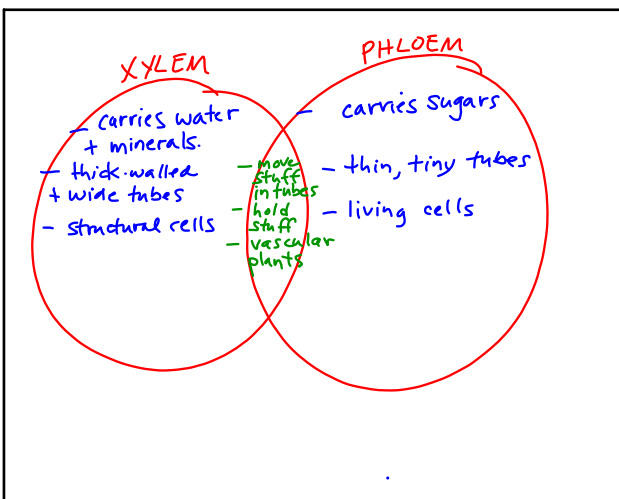 XYLEM
- carries water
+ minerals.
- thick-walled
+ wide tubes
- structural cells
- move
stuff
in tubes
- hold
stuff
- vascular
plants
PHLOEM
- carries sugars
- thin, tiny tubes
- living cells